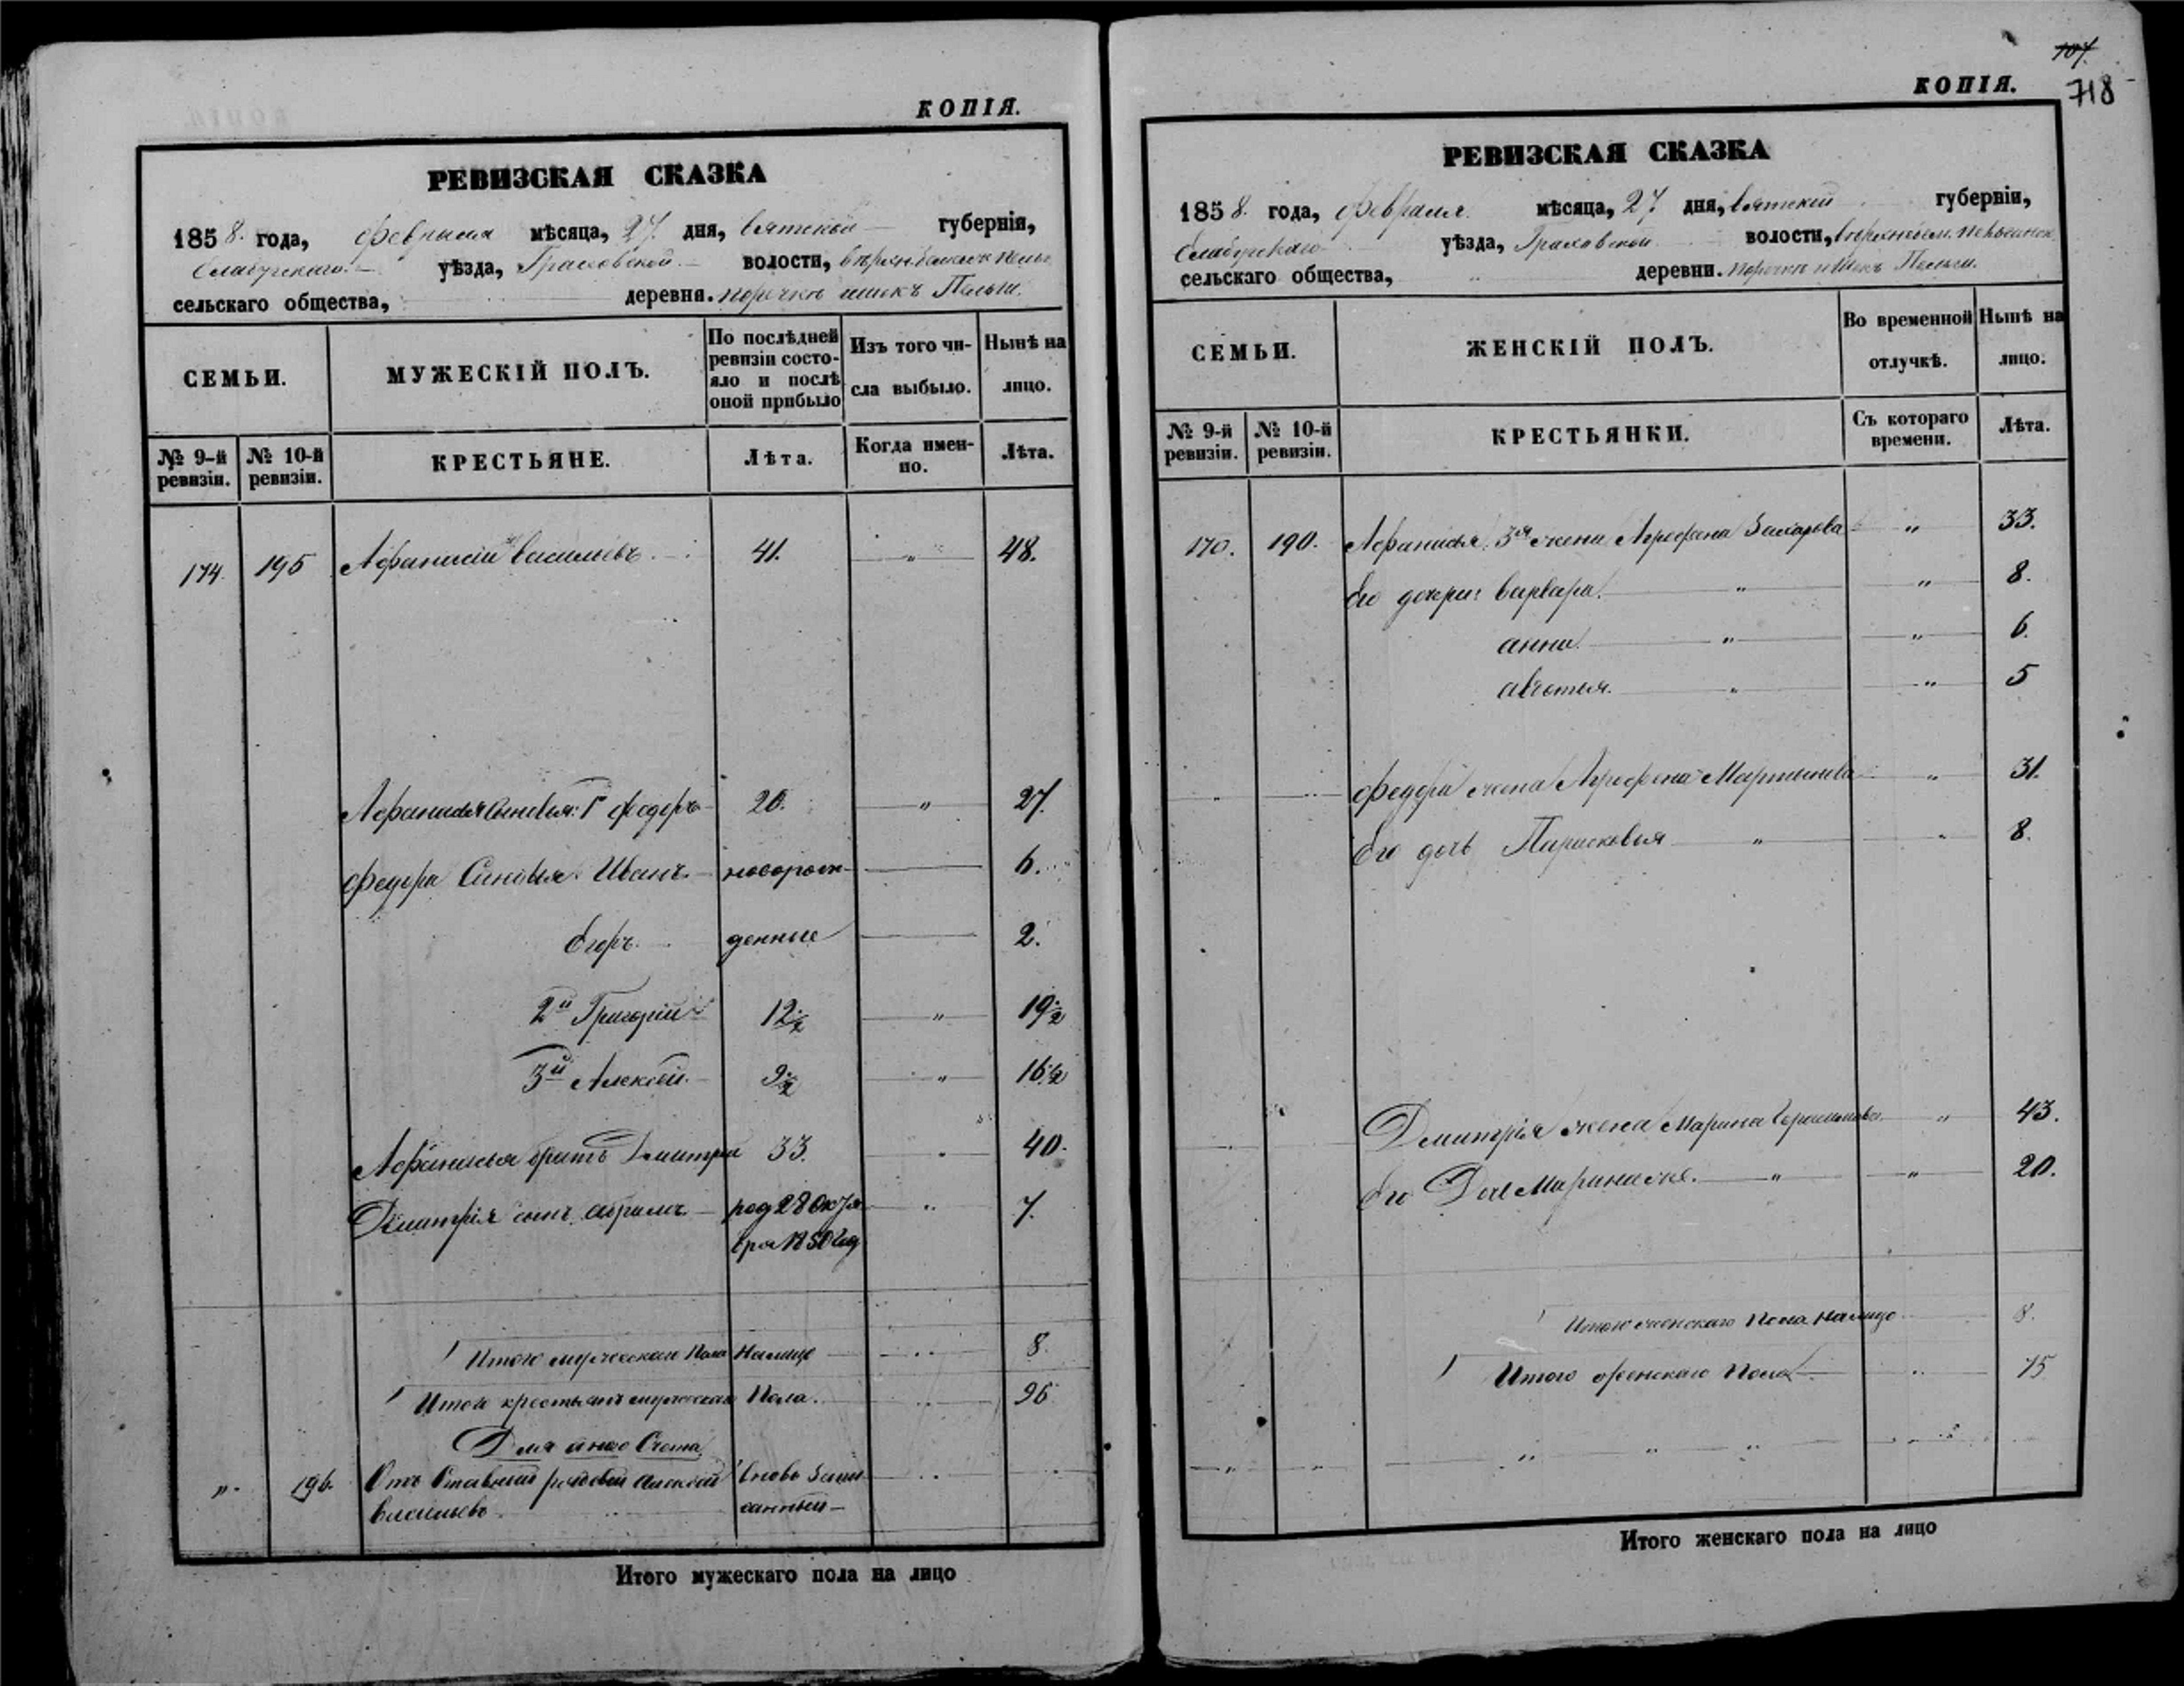 КОПІЯ.
РЕВИЗСКАЯ СКАЗКА
1858. года, февраля мѣсяца, 27. дня, Вятской губерніи,
Елабужскаго уѣзда, Граховской волости,
сельскаго общества, деревни.
СЕМЬИ.
МУЖЕСКІЙ ПОЛЪ.
По послѣдней ревизіи состояло и послѣ оной прибыло
Изъ того числа выбыло.
Нынѣ на лицо.
№ 9-й ревизіи.
№ 10-й ревизіи.
КРЕСТЬЯНЕ.
Лѣта.
Когда именно.
Лѣта.
174. 195 Афанасій Васильевъ 41. 48.
Афанасья сыновья: 1й Федоръ 20. 27.
Федора Сыновья: Иванъ новорож- 6.
Егоръ. денные 2.
2й Григорій 12½ 19½
3й Алексѣй 9½ 16½
Афанасья братъ Дмитрій 33. 40.
Дмитрія сынъ Абрамъ род 28 Октя 7.
бря 1850 год
Итого мужескаго пола на лицо 8.
Итого крестьянъ мужескаго Пола. 96
Для Счета
" 196. Отъ Ставный рядовой Алексѣй вновь запи
Васильевъ. санный
Итого мужескаго пола на лицо
104.
718
КОПІЯ.
РЕВИЗСКАЯ СКАЗКА
1858. года, февраля мѣсяца, 27 дня, Вятской губерніи,
Елабужскаго уѣзда, Граховской волости,
сельскаго общества, деревни.
СЕМЬИ.
ЖЕНСКІЙ ПОЛЪ.
Во временной отлучкѣ.
Нынѣ на лицо.
№ 9-й ревизіи.
№ 10-й ревизіи.
КРЕСТЬЯНКИ.
Съ котораго времени.
Лѣта.
170. 190. Афанасья 3я жена Агрефена Захарова " 33.
Его дочери: Варвара. " " 8.
анна. " " 6.
авдотья. " " 5
Федора жена Агрефена Мартынова " 31.
Его дочь Парасковья " " 8.
Дмитрія жена Марина " 43.
Его Дочь " " 20.
Итого женскаго Пола на лицо 8.
Итого женскаго Пола 75
Итого женскаго пола на лицо